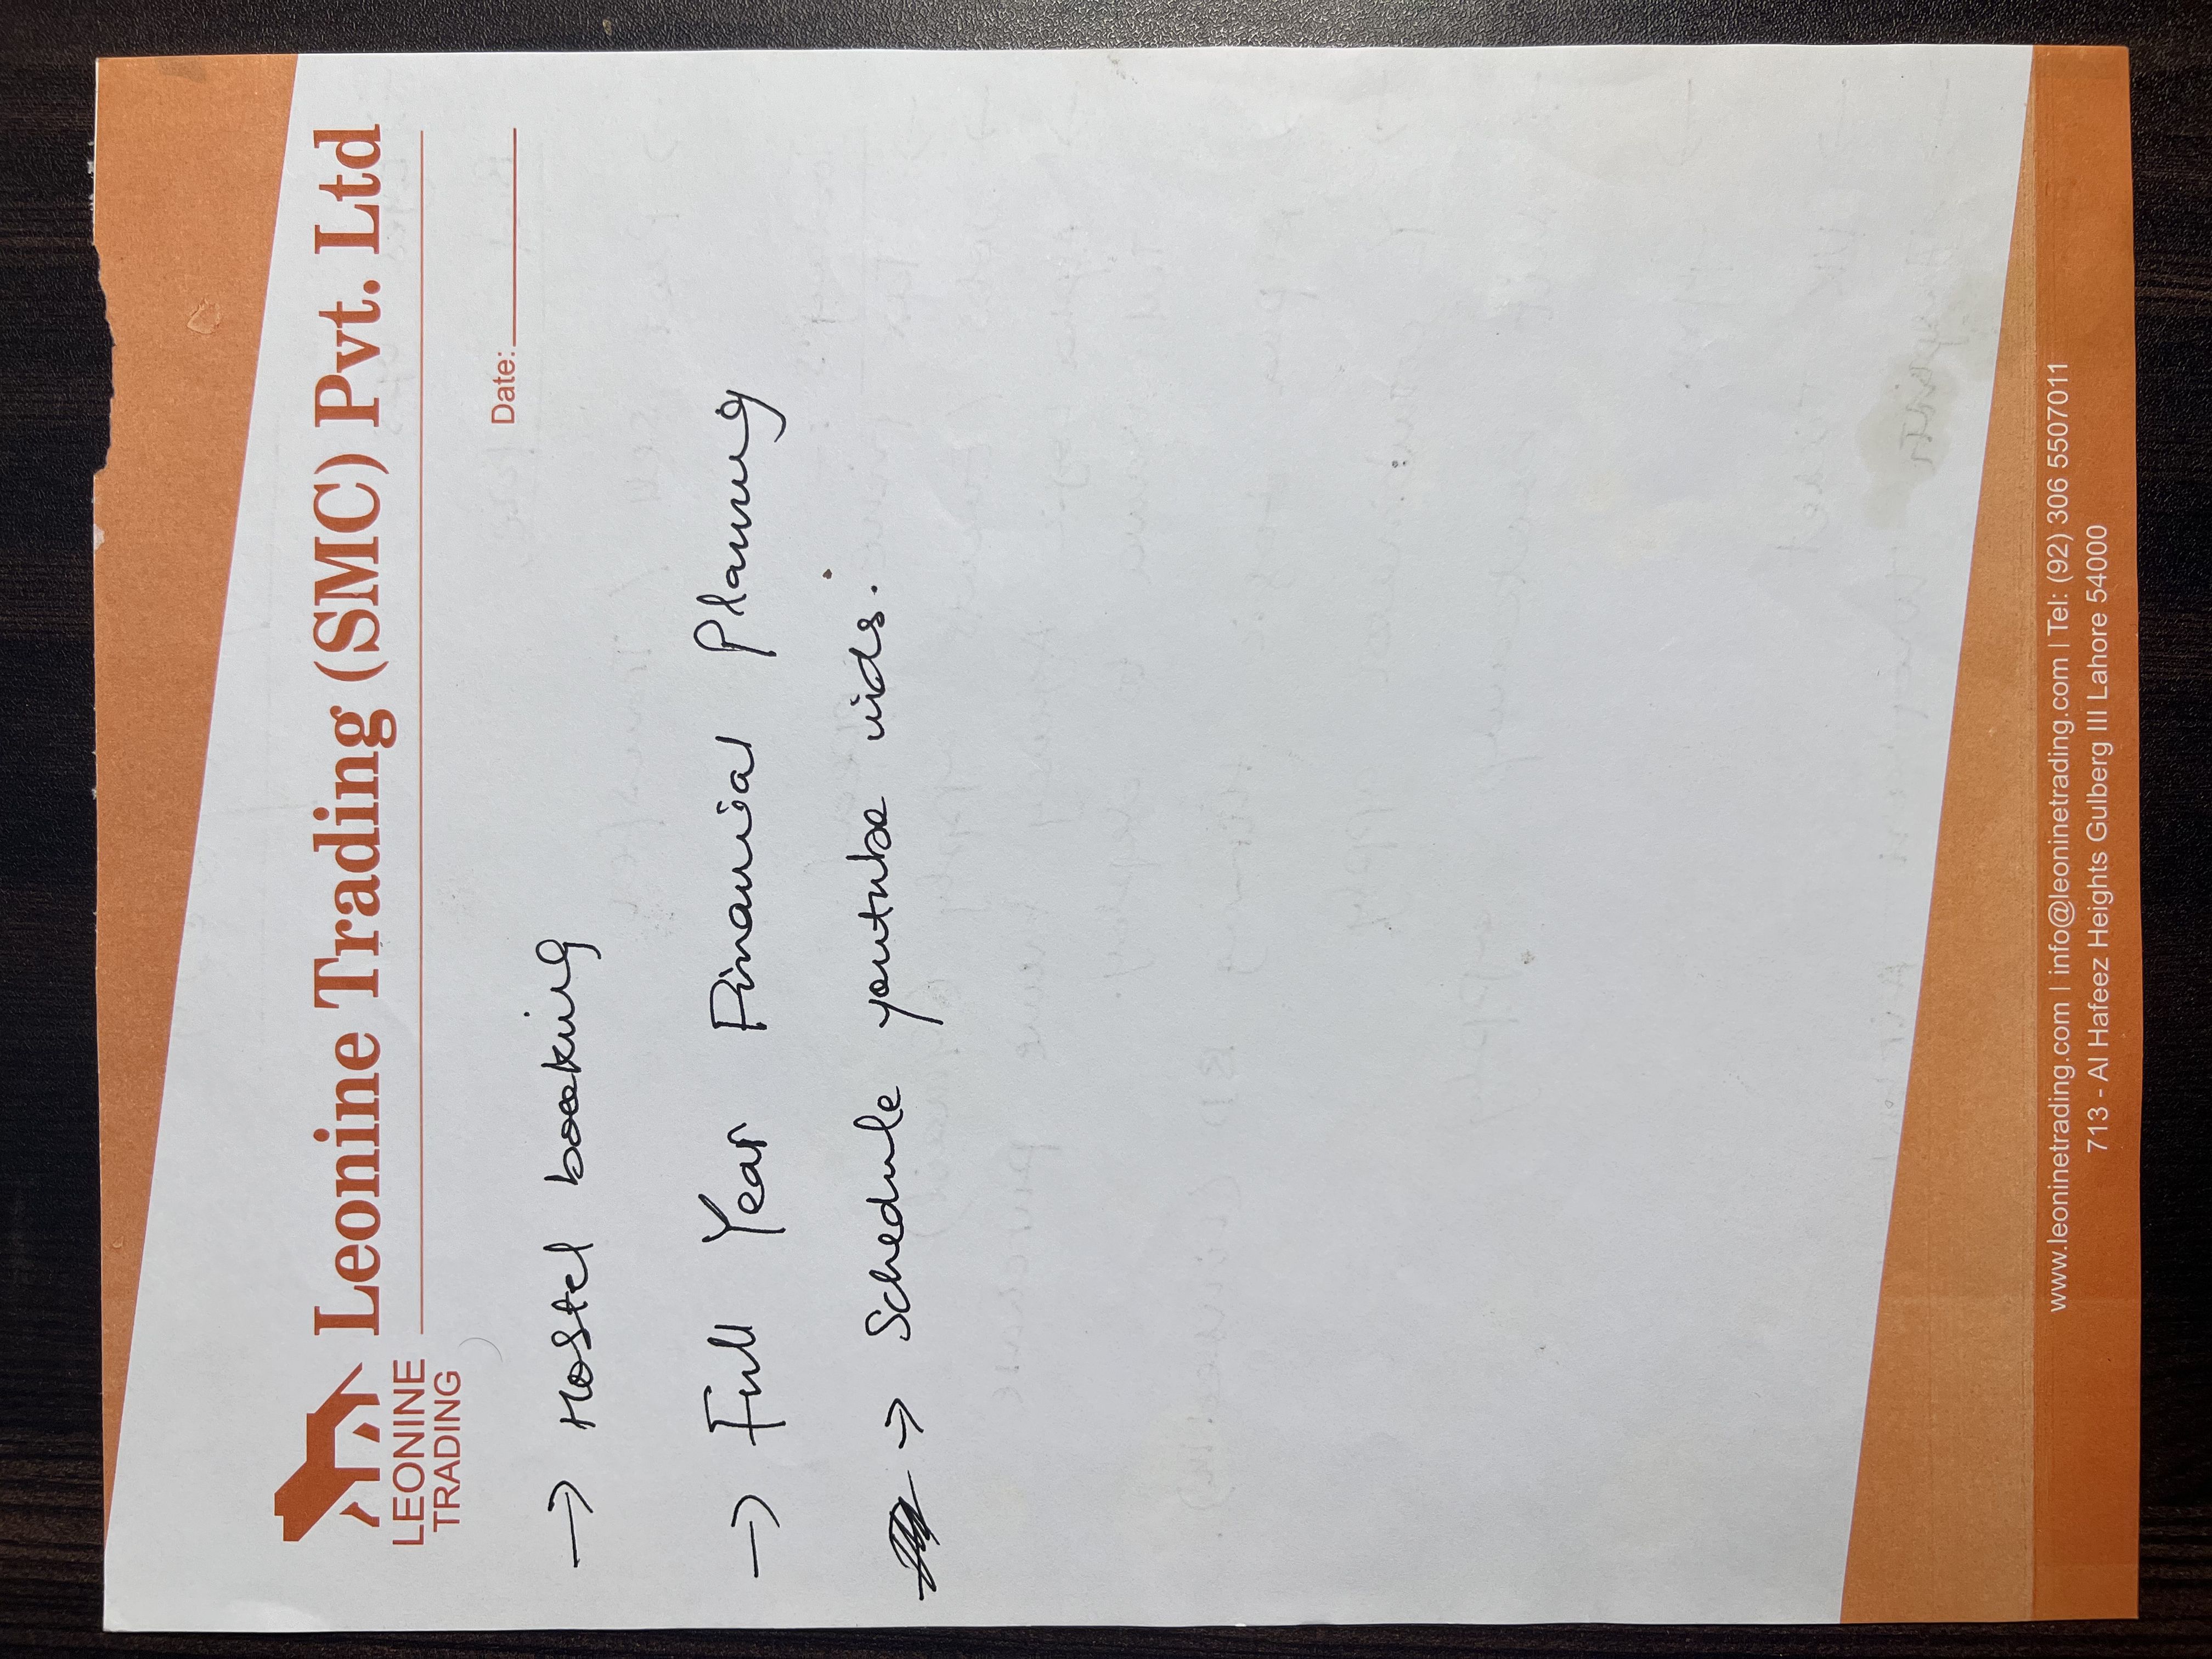 Leonine Trading (SMC) Pvt. Ltd
LEONINE
TRADING
Date:
→ Hostel booking
→ Full Year Financial Planning
→ Schedule youtube vids.
www.leoninetrading.com | info@leoninetrading.com | Tel: (92) 306 5507011
713 - Al Hafeez Heights Gulberg III Lahore 54000